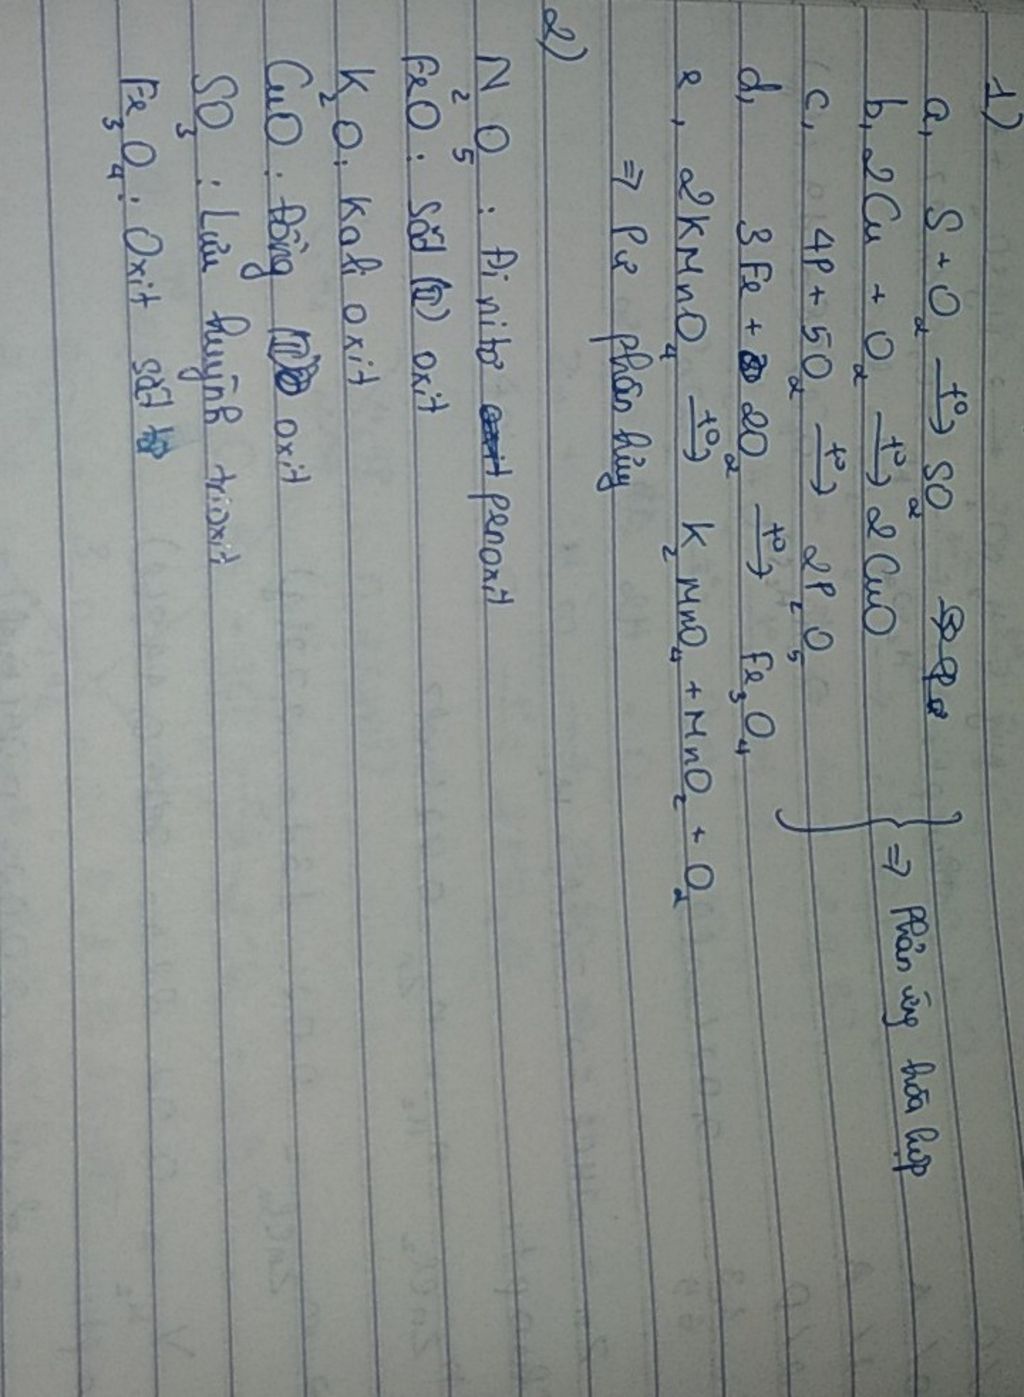 1)
a, S + O₂ —t°→ SO₂
b, 2Cu + O₂ —t°→ 2CuO } => Phản ứng hóa hợp
c, 4P + 5O₂ —t°→ 2P₂O₅
d, 3Fe + 2O₂ —t°→ Fe₃O₄
e, 2KMnO₄ —t°→ K₂MnO₄ + MnO₂ + O₂
=> Pư phân hủy
2)
N₂O₅ : Đi nitơ penoxit
FeO : Sắt (II) oxit
K₂O : Kali oxit
CuO : Đồng (II) oxit
SO₃ : Lưu huỳnh trioxit
Fe₃O₄ : Oxit sắt từ